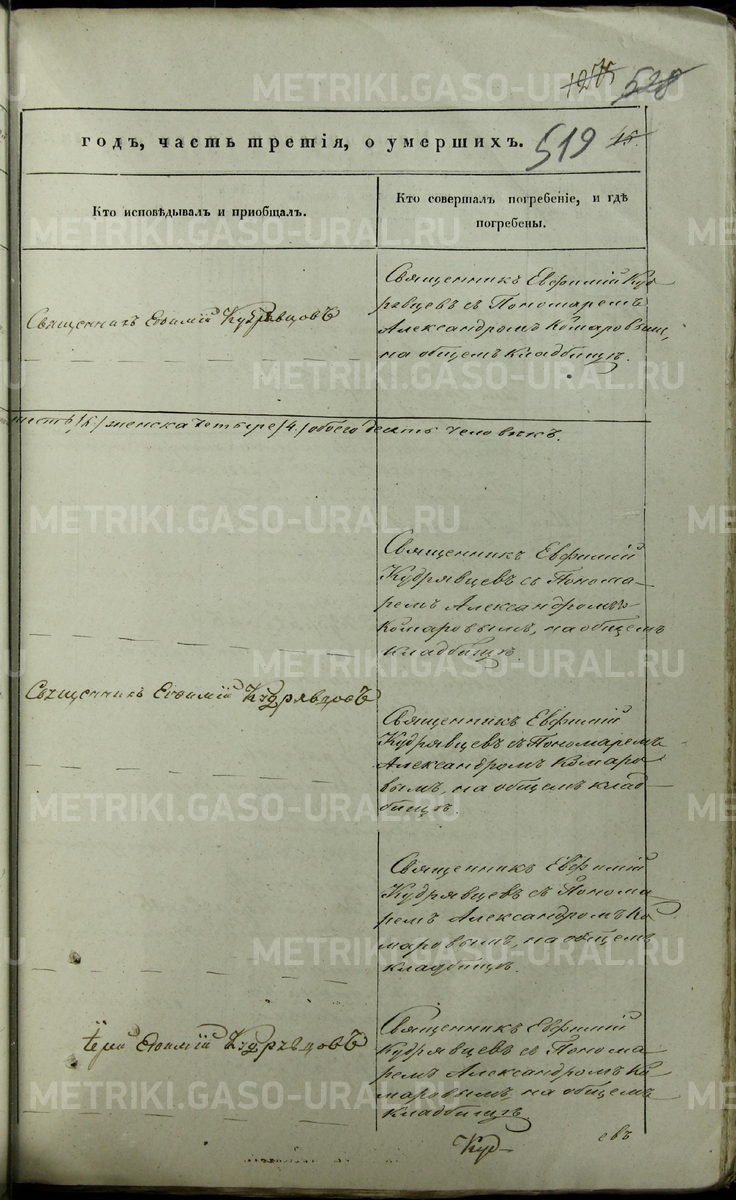 1275 528
годъ, часть третія, о умершихъ. 519 15.
Кто исповѣдывалъ и пріобщалъ.
Кто совершалъ погребеніе, и гдѣ
погребены.
Священникъ Евфимій Куд-
рявцевъ съ Пономаремъ
Александромъ Комаровымъ,
на общемъ кладбищѣ.
Священникъ Евѳимій Кудрявцовъ
женска четыре /4/ обоего десять человѣкъ.
Священникъ Евфимій
Кудрявцевъ съ Понома-
ремъ Александромъ
Комаровымъ, на общемъ
кладбищѣ.
Священникъ Евѳимій Кудрявцовъ
Священникъ Евфимій
Кудрявцевъ съ Пономаремъ
Александромъ Комаро-
вымъ, на общемъ клад-
бищѣ.
Священникъ Евфимій
Кудрявцевъ съ Понома-
ремъ Александромъ Ко-
маровымъ, на общемъ
кладбищѣ.
Іерей Евѳимій Кудрявцовъ
Священникъ Евфимій
Кудрявцевъ съ Понома-
ремъ Александромъ Ко-
маровымъ на общемъ
кладбищѣ.
Куд- евъ
METRIKI.GASO-URAL.RU